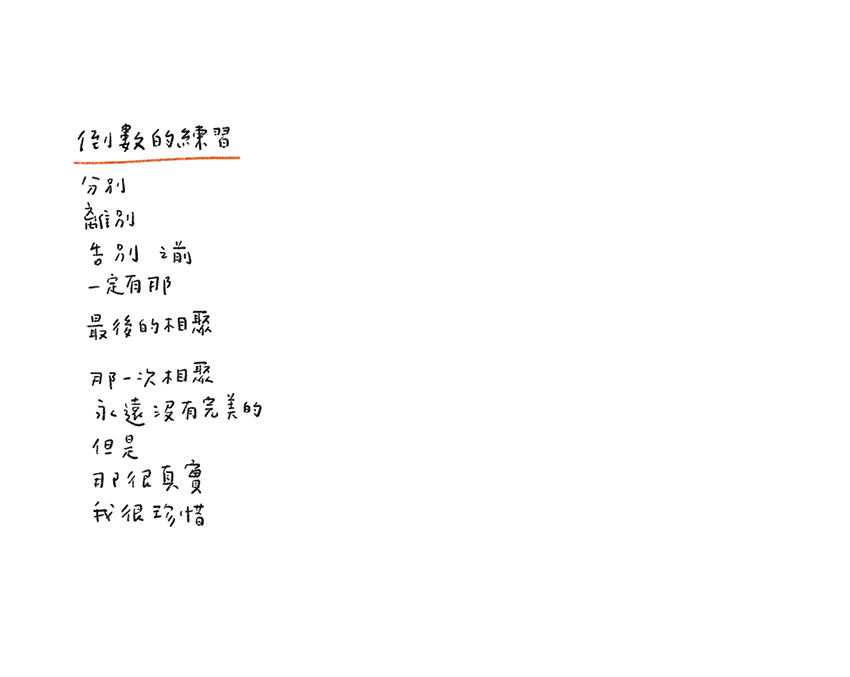 倒數的練習
分別
離別
告別 之前
一定有那
最後的相聚
那一次相聚
永遠沒有完美的
但是
那很真實
我很珍惜